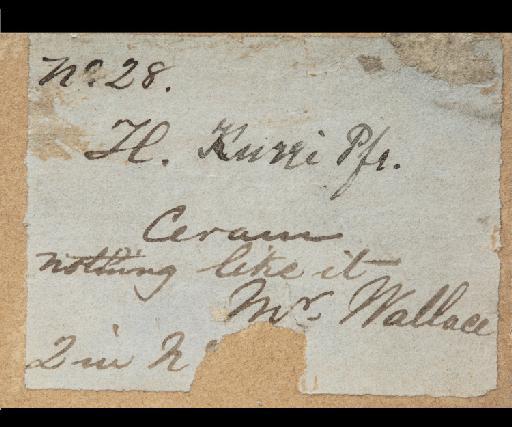 No. 28.
H. Kurri Pfr.
Ceram
nothing like it
Mr. Wallace
2 in